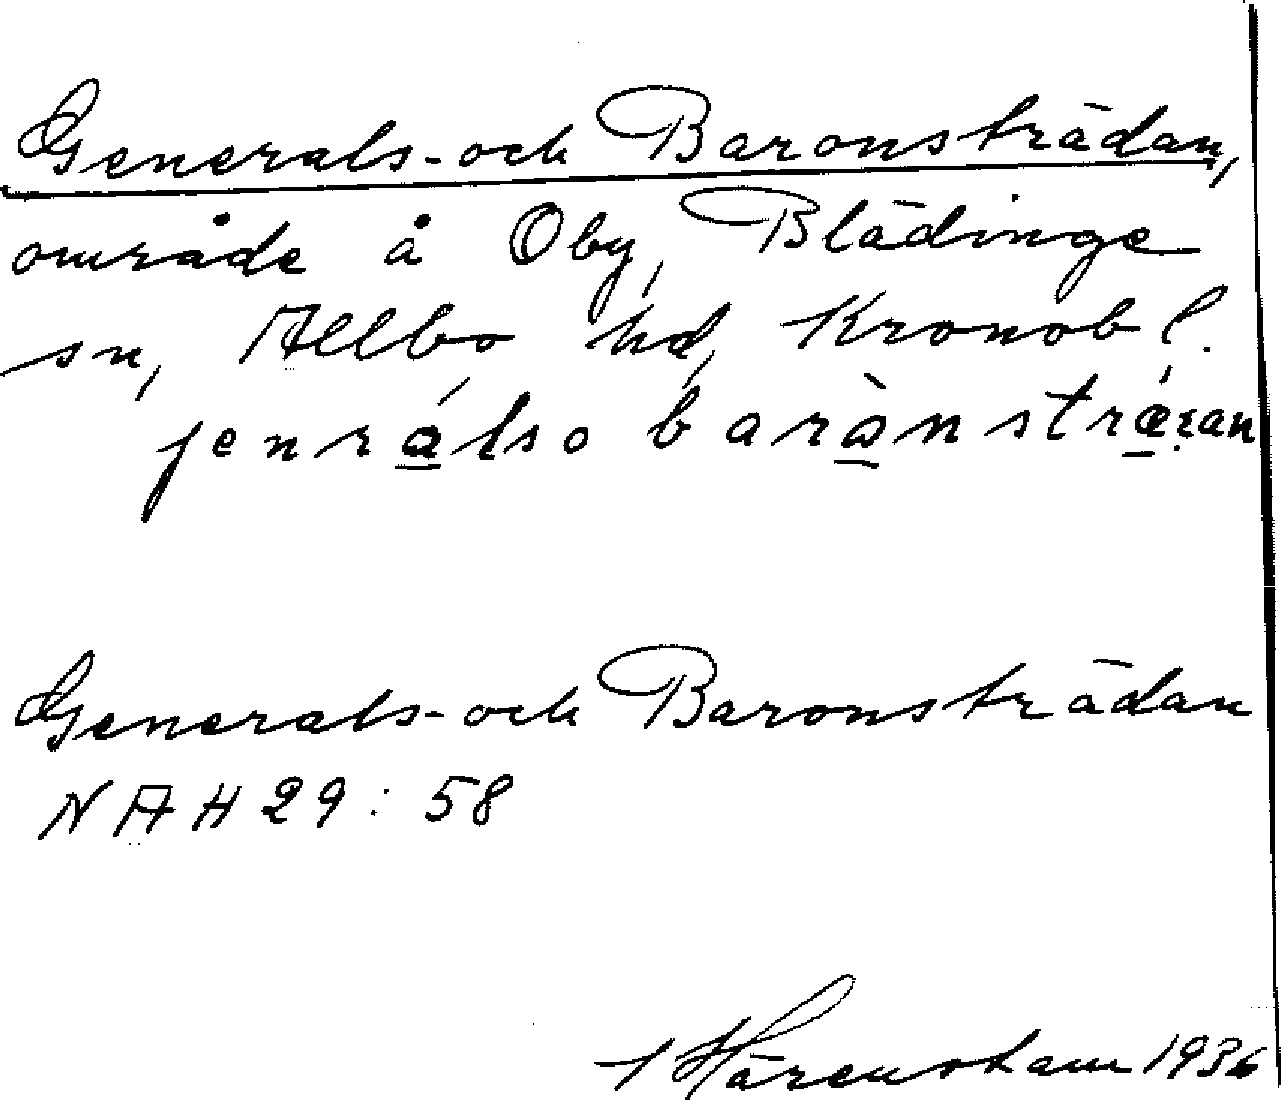 Generals- och Baronsträdan,
område å Oby, Blädinge
sn, Allbo hd, Kronob l.
jenrálso barònstrǽran
Generals- och Baronsträdan
NAH 29: 58
Härenstam 1936